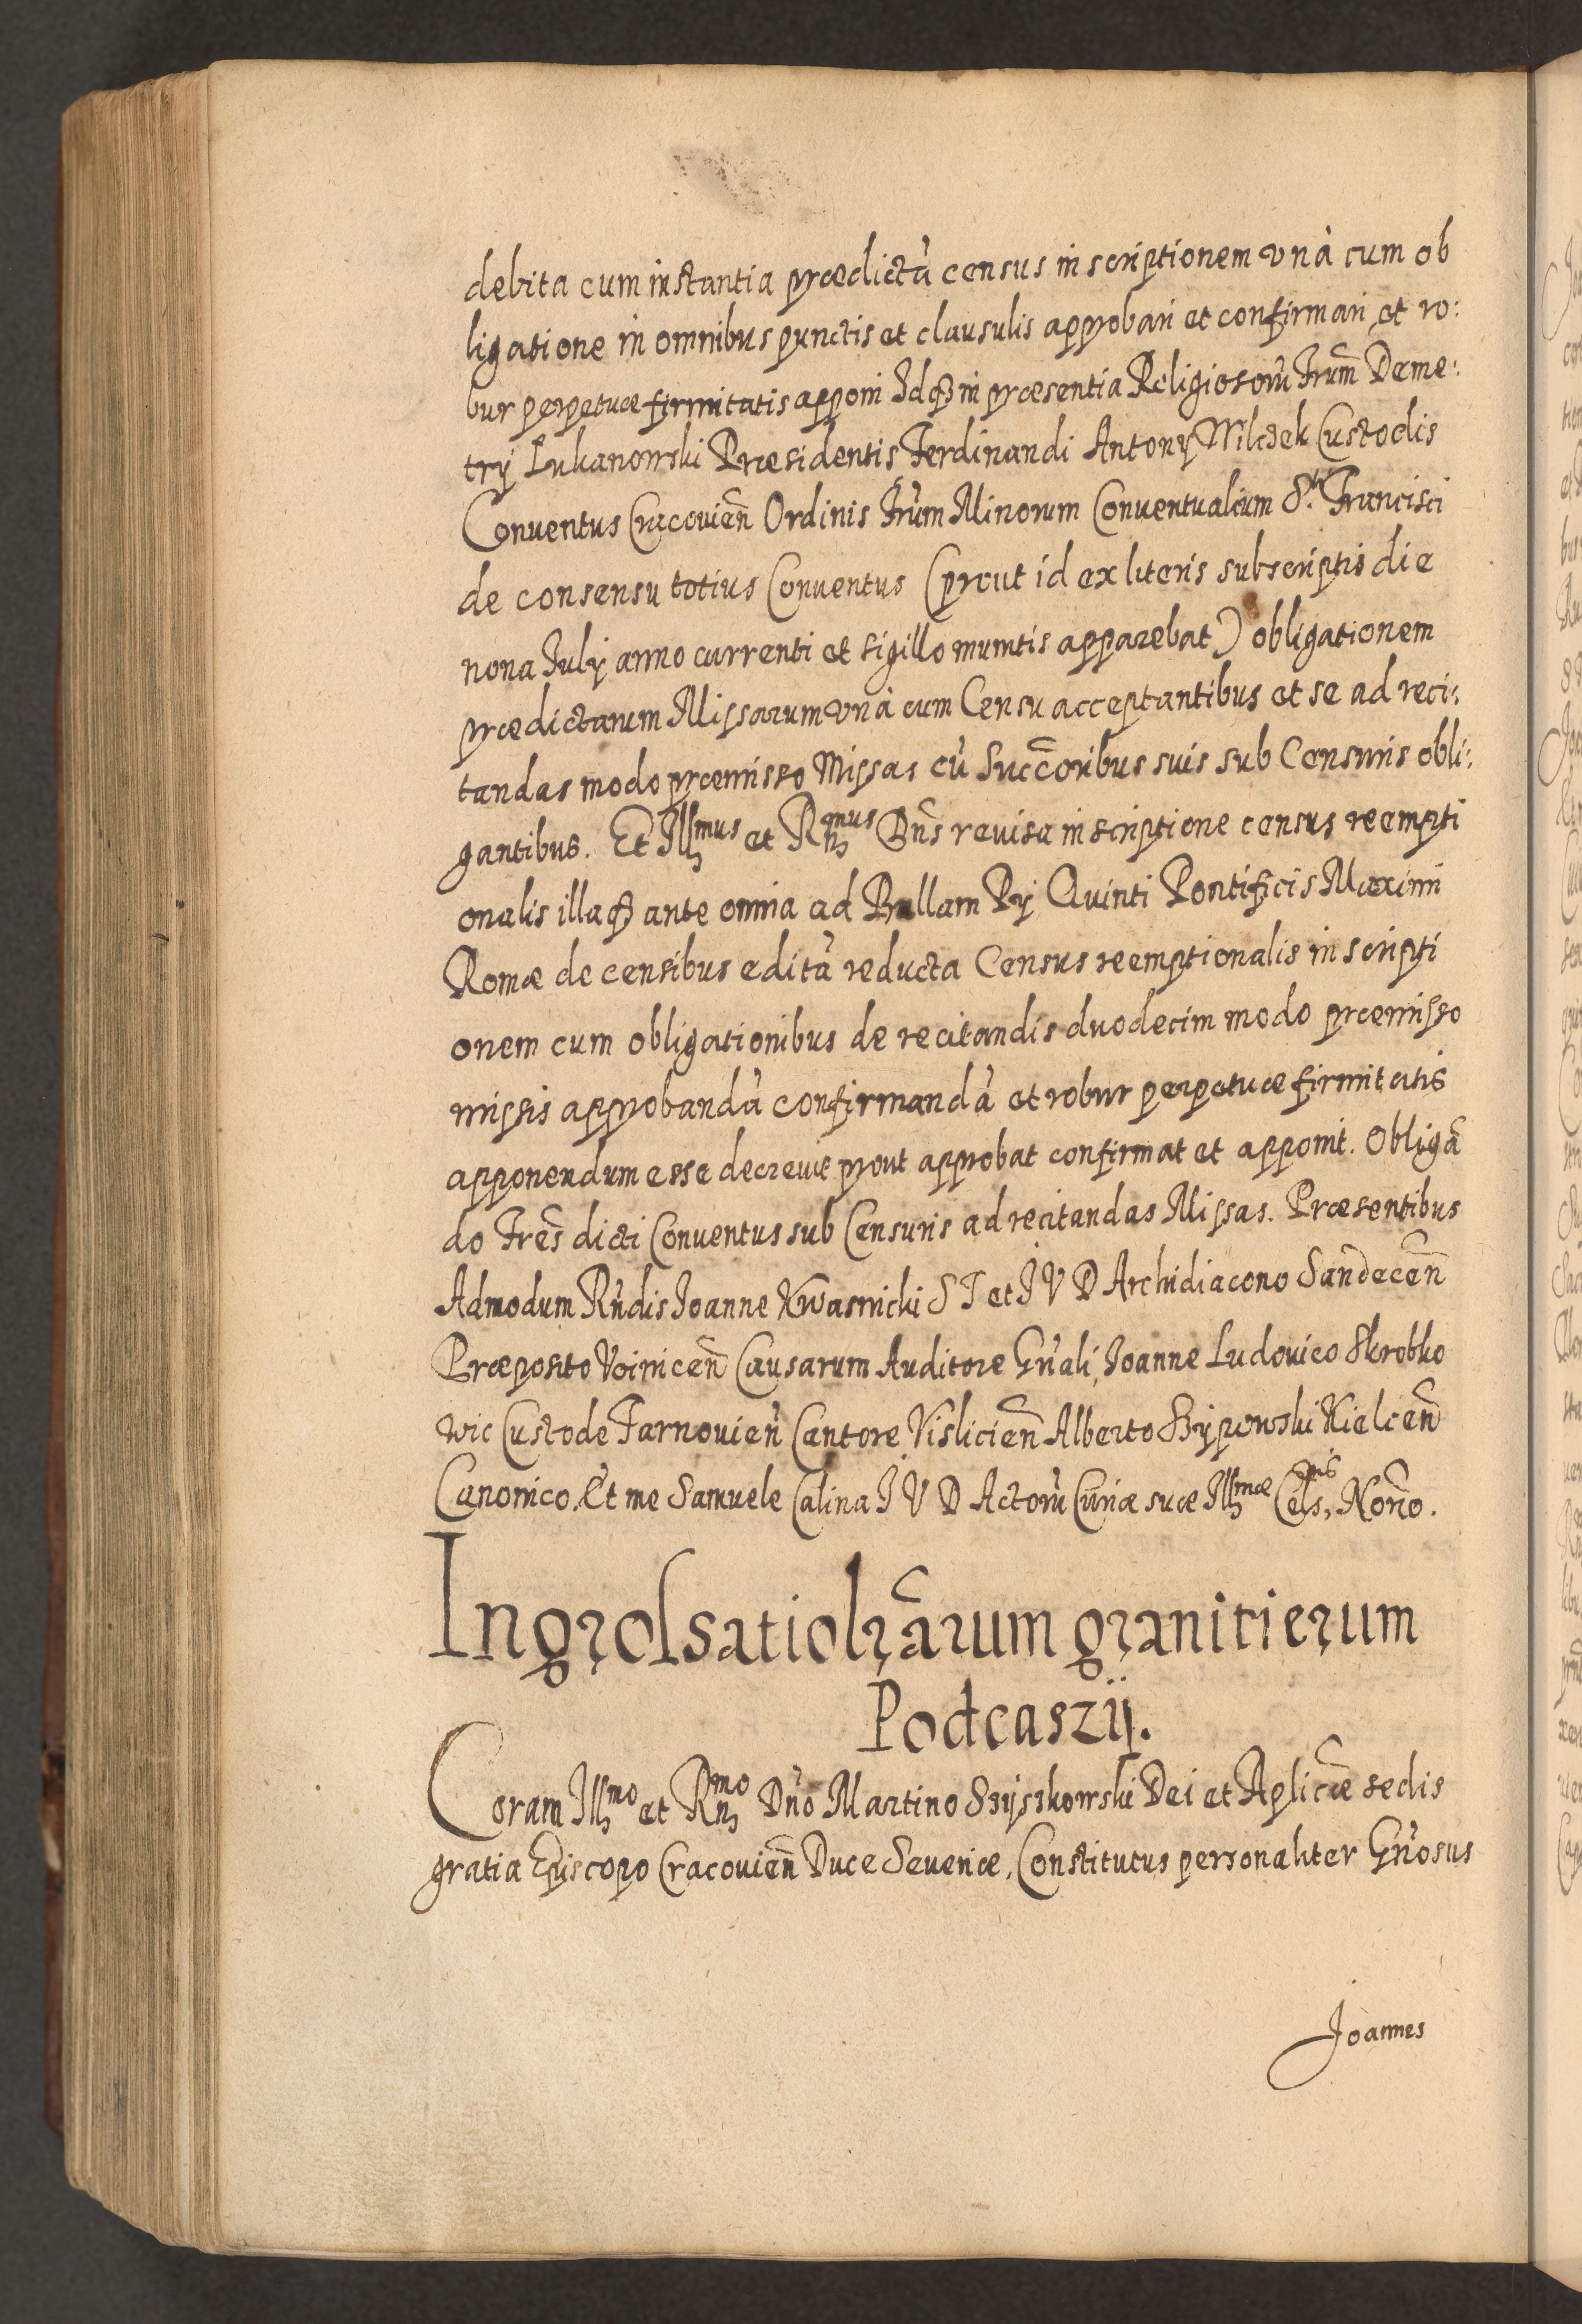 debita cum instantia prædictã census inscriptionem vnà cum ob
ligatione in omnibus punctis et clausulis approbari et confirmari et ro:
bur perpetuæ firmitatis apponi Idq3 in præsentia Religiosorũ Frum̃ Deme:
trÿ Lukanowski Præsidentis Ferdinandi Antonÿ Wilczek Custodis
Conuentus Cracouien̄ Ordinis Frũm Minorum Conuentualium S.ti Francisci
de consensu totius Conuentus (prout id ex literis subscriptis die
nona Julÿ anno currenti et sigillo munitis apparebat) obligationem
prædictarum Missarum vnà cum Censu acceptantibus et se ad reci:
tandas modo præmisso Missas cũ Succ̄oribus suis sub Censuris obli:
gantibus. Et Illmus et Rnmus Dn̄s reuisa inscriptione census reempti
onalis illaq3 ante omnia ad Bullam Pÿ Quinti Pontificis Maximi
Romæ de censibus editã reducta Census reemptionalis inscripti
onem cum obligationibus de recitandis duodecim modo præmisso
missis approbandã confirmandã et robur perpetuæ firmitatis
apponendum esse decreuit prout approbat confirmat et apponit. Obligã
do Fres̄ dicti Conuentus sub Censuris ad recitandas Missas. Præsentibus
Admodum Rñdis Joanne Kwasnicki S T et J V D Archidiacono Sandecen̄
Præposito Voinicen̄ Causarum Auditore Gñali, Joanne Ludouico Skrobko
wic Custode Tarnouieñ Cantore Vislicien̄ Alberto Szÿpowski Kielcen̄
Canonico. Et me Samuele Calina J V D Actorũ Curiæ suæ Illmæ Celsnis, Nor̄io.
Ingrossatio lr̄arum granicierum
Podcaszÿ.
Coram Illmo et Rnmo Dño Martino Szÿszkowski Dei et Aplicæ sedis
gratia Episcopo Cracouien̄ Duce Seueriæ, Constitutus personaliter Gñosus
Joannes